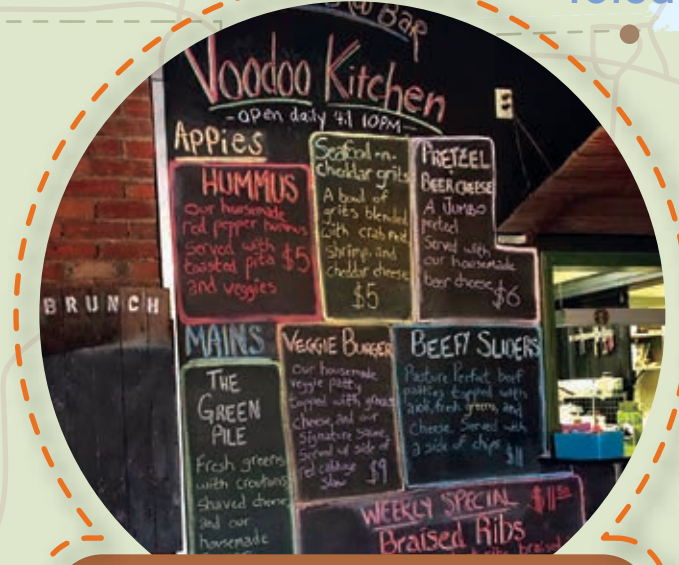 BAR
Voodoo Kitchen
-open daily til 10PM-
Appies
HUMMUS
our housemade
red pepper hummus
served with
toasted pita $5
and veggies
Seafood-n-
cheddar grits
A bowl of
grits blended
with crab meat
shrimp, and
cheddar cheese
$5
PRETZEL
BEER CHEESE
A JUMBO
pretzel
served with
our housemade
beer cheese $6
BRUNCH
MAINS
THE
GREEN
PILE
Fresh greens
with croutons
shaved cheese
and our
housemade
VEGGIE BURGER
our housemade
veggie patty
topped with goat
cheese, and our
signature sauce
served w/ side of
red cabbage
slaw $9
BEEFY SLIDERS
Pasture Perfect beef
patties topped with
aioli, fresh greens, and
cheese. Served with
a side of chips
$11
WEEKLY SPECIAL $11
Braised Ribs